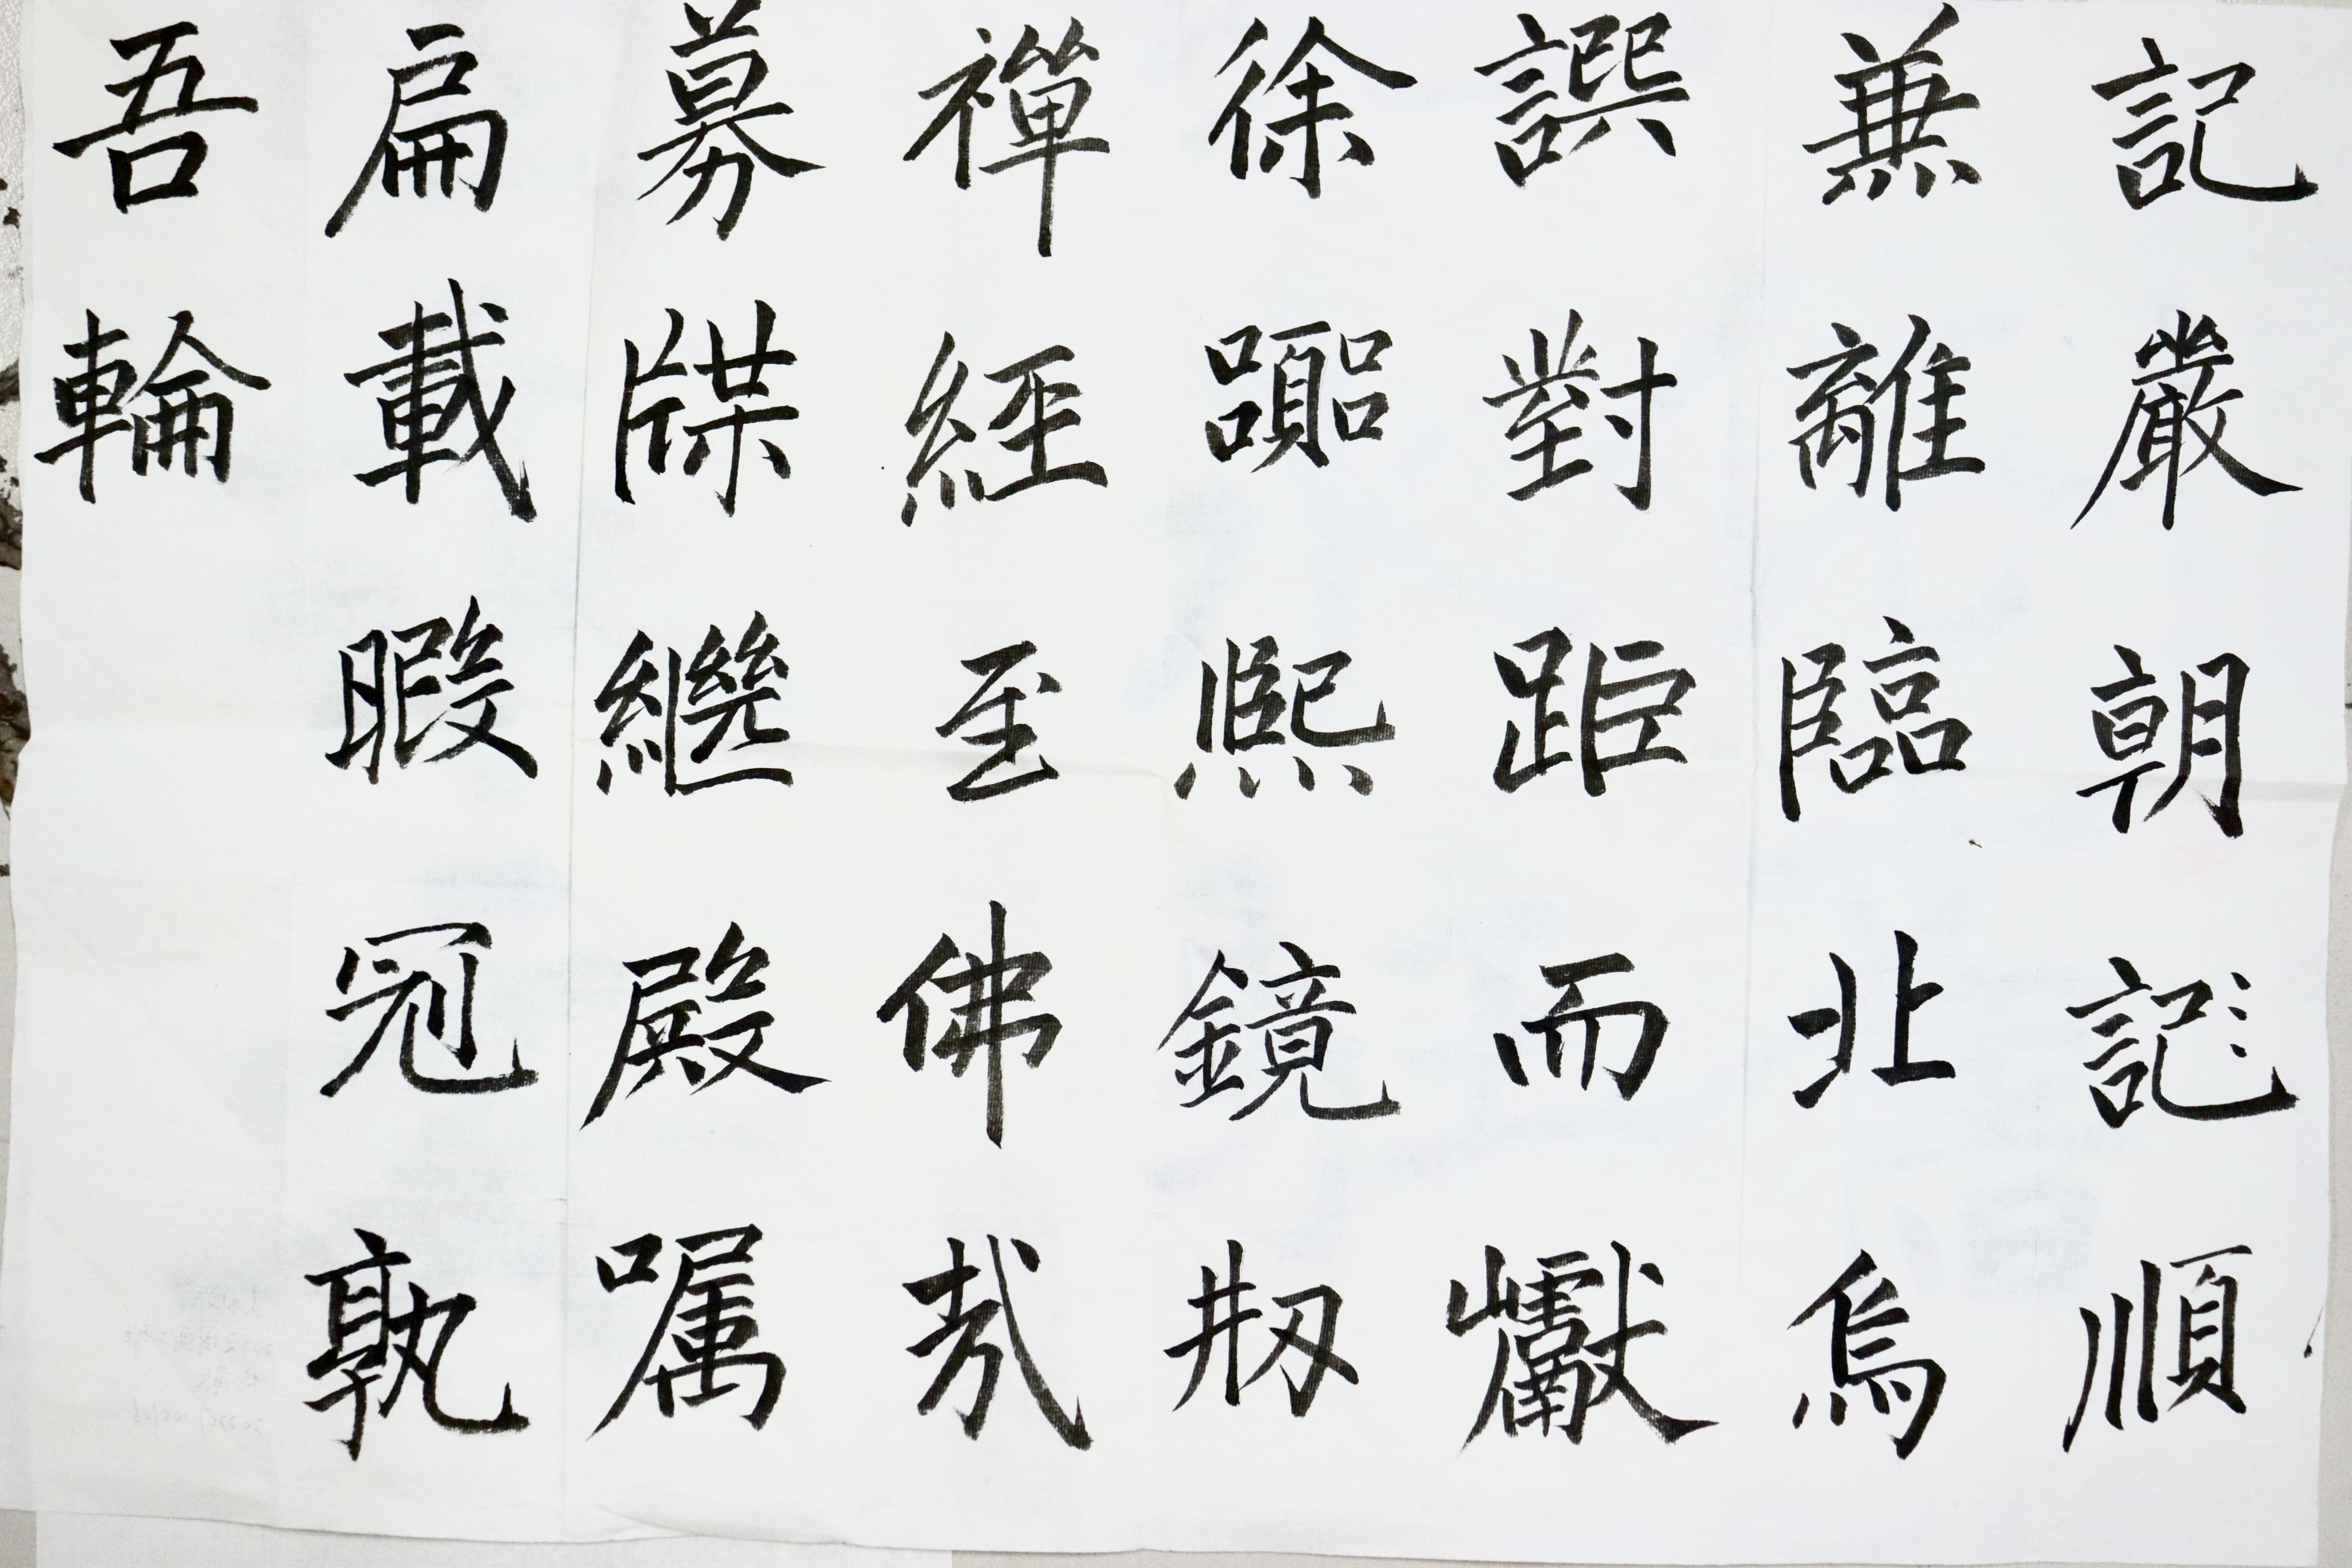 記嚴朝記順
兼離臨北烏
譔對距而巘
徐囂熙鏡刱
禪經至佛
募牒繼殿嘱
扁載暇冠孰
吾輪